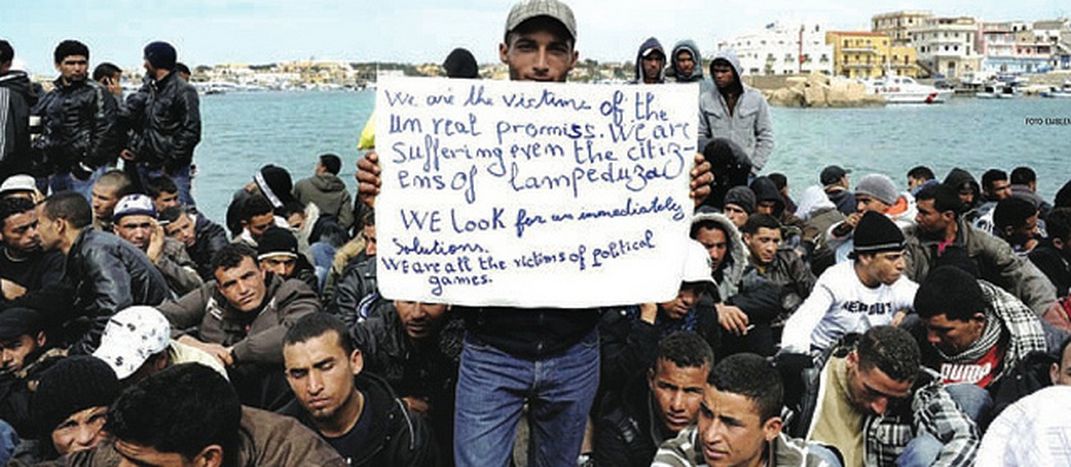 We are the victime of the
Un real promiss. We are
Suffering even the citiz-
ens of lampeduza
WE look for un immediately
Solutions.
We are all the victims of political
games.
FOTO EMBLEM
PUMA